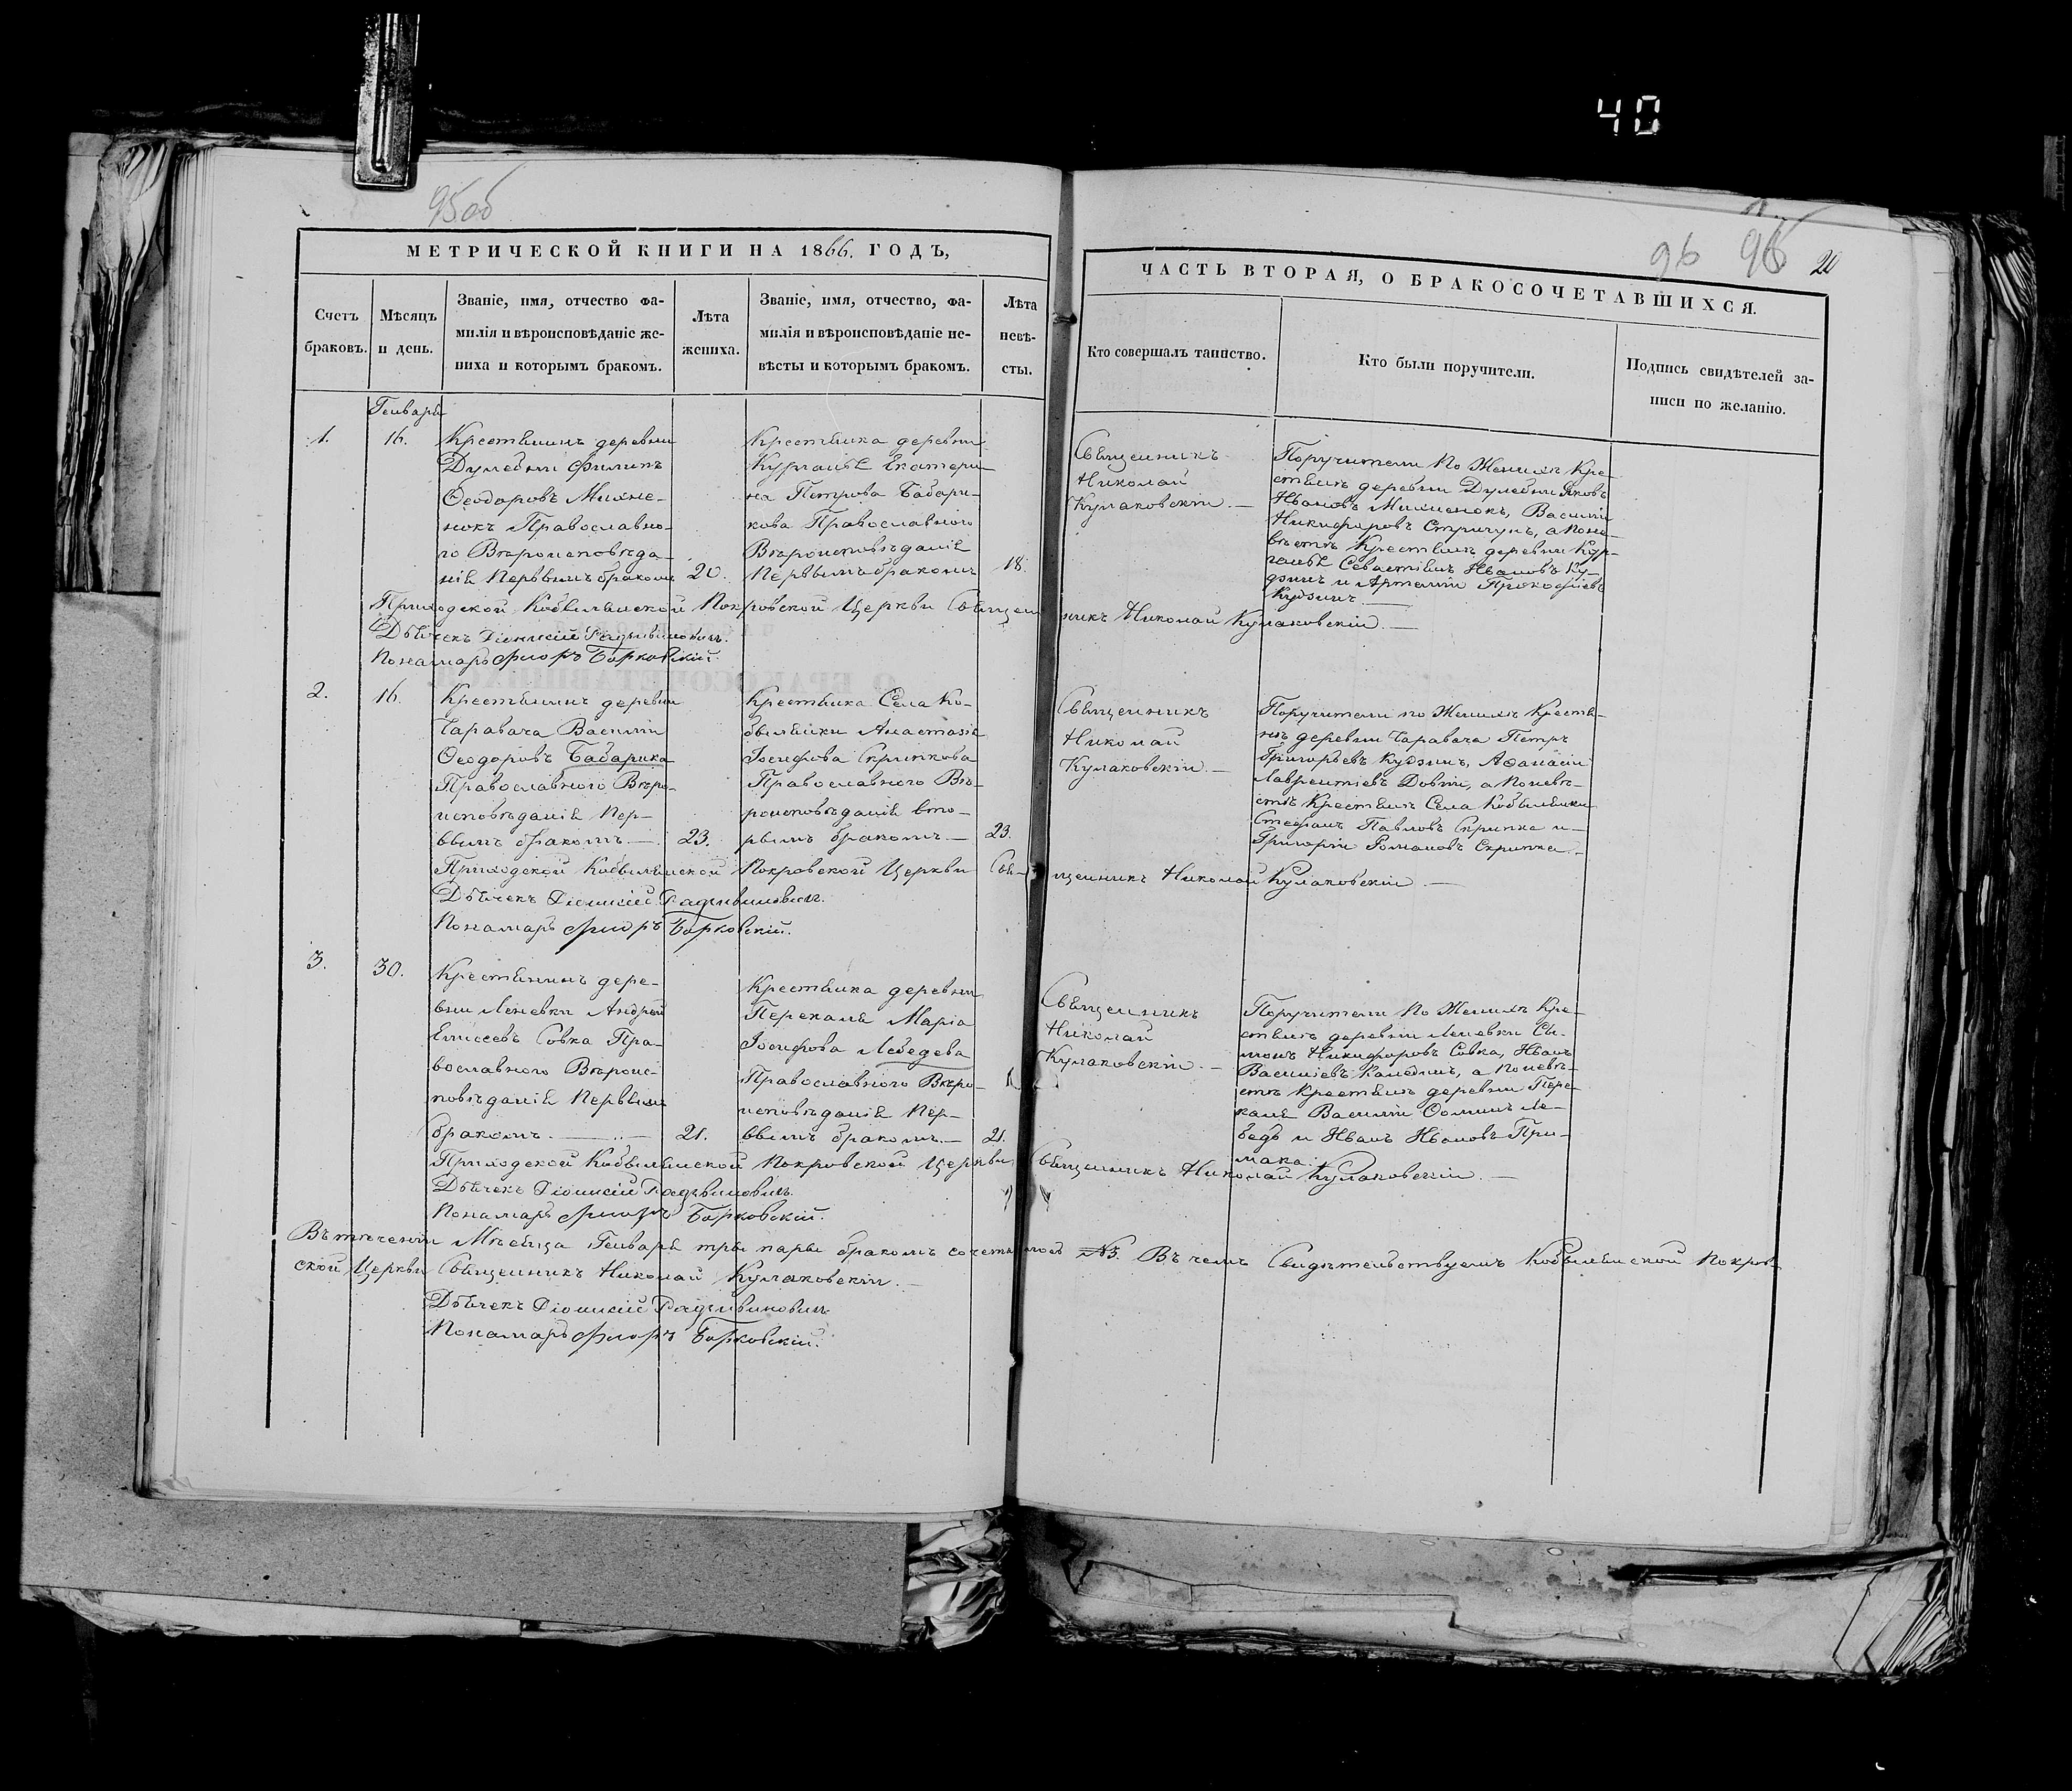 40
95об
96 96 20
МЕТРИЧЕСКОЙ КНИГИ НА 1866. ГОДЪ,
Счетъ браковъ.
Мѣсяцъ и день.
Званіе, имя, отчество фа-
милія и вѣроисповѣданіе же-
ниха и которымъ бракомъ.
Лѣта
жениха.
Званіе, имя, отчество, фа-
милія и вѣроисповѣданіе не-
вѣсты и которымъ бракомъ.
Лѣта
невѣ-
сты.
ЧАСТЬ ВТОРАЯ, О БРАКОСОЧЕТАВШИХСЯ.
Кто совершалъ таинство.
Кто были поручители.
Подпись свидѣтелей за-
писи по желанію.
Генваря
1.
16.
Крестьянинъ деревни
Дулебни Филипъ
Ѳеодоровъ Михне-
нокъ Православно-
го Вѣроисповѣда-
нія Первымъ бракомъ
20.
Крестьянка деревни
Курганья Екатери-
на Петрова Бабари-
кова Православного
Вѣроисповѣданія
Первымъ бракомъ
18.
Священникъ
Николай
Кулаковскій. —
Поручители По Женихѣ Кре-
стьянъ деревни Дулебни Яковъ
Ивановъ Михненокъ, Василій
Никифоровъ Стригунъ, а Поне-
вѣстѣ Крестьянъ деревни Кур-
ганья Севастіянъ Ивановъ Ку-
дзинъ и Артемій Прокофіевъ
Кудзинъ —
Приходской Кобылянской Покровской Церкви Священникъ Николай Кулаковскій. —
Дьячекъ Діонисій Радзивиновичъ.
Пономарь Флоръ Борковскій.
2.
16.
Крестьянинъ деревни
Чаравача Василій
Ѳеодоровъ Бабарика
Православного Вѣро-
исповѣданія Пер-
вымъ бракомъ. —
23.
Крестьянка Села Ко-
былянки Анастасія
Іосифова Скрипкова
Православного Вѣ-
роисповѣданія вто-
рымъ бракомъ —
23.
Священникъ
Николай
Кулаковскій. —
Поручители по Женихѣ Крестья-
нъ деревни Чаравача Петръ
Григорьевъ Кудзинъ, Аѳанасій
Лаврентіевъ Довгій, а Поневѣ-
стѣ Крестьянъ Села Кобылянки
Стефанъ Павловъ Скрипка и
Григорій Романовъ Скрипка. —
Приходской Кобылянской Покровской Церкви Священникъ Николай Кулаковскій —
Дьячекъ Діонисій Радзивиновичъ.
Пономарь Флоръ Борковскій.
3.
30.
Крестьянинъ дере-
вни Леневки Андрей
Елисеевъ Совка Пра-
вославного Вѣроис-
повѣданія Первымъ
бракомъ. —
21.
Крестьянка деревни
Перекаля Марія
Іосифова Лебедева
Православного Вѣро-
исповѣданія Пер-
вымъ бракомъ. —
21.
Священникъ
Николай
Кулаковскій. —
Поручители По Женихѣ Кре-
стьянъ деревни Леневки Си-
монъ Никифоровъ Совка, Иванъ
Василіевъ а Поневѣ-
стѣ Крестьянъ деревни Пере-
каля Василій Ѳоминъ Ле-
бедь и Иванъ Ивановъ При-
мака.
Приходской Кобылянской Покровской Церкви Священникъ Николай Кулаковскій. —
Дьячекъ Діонисій Радзивиновичъ.
Пономарь Флоръ Борковскій.
Въ теченіи Мѣсяца Генваря три пары бракомъ сочеталось №3. Въ чемъ Свидѣтельствуемъ Кобылянской Покров-
ской Церкви Священникъ Николай Кулаковскій. —
Дьячекъ Діонисій Радзивиновичъ
Пономарь Флоръ Борковскій.